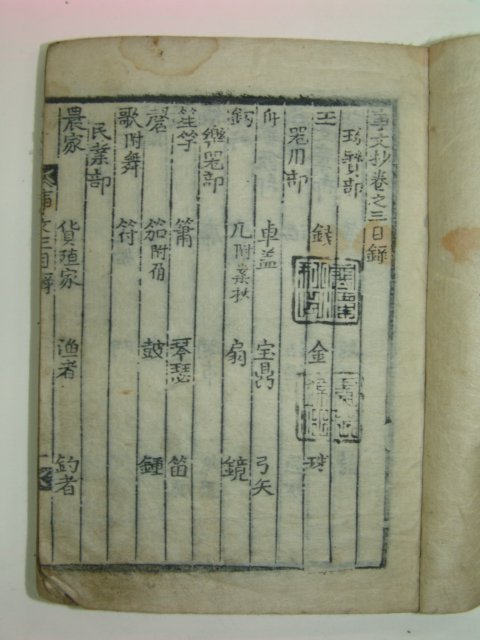 事文抄卷之三目録
珎寶部
玉 錢 金 珠
器用部
舟 車盖 宝鼎 弓矢
几附案杖 扇 鏡
樂器部
笙竽 簫 琴瑟 笛
磬 笳附角 鼓 鍾
歌附舞 符
民業部
農家 貨殖家 漁者 釣者
事文三目録